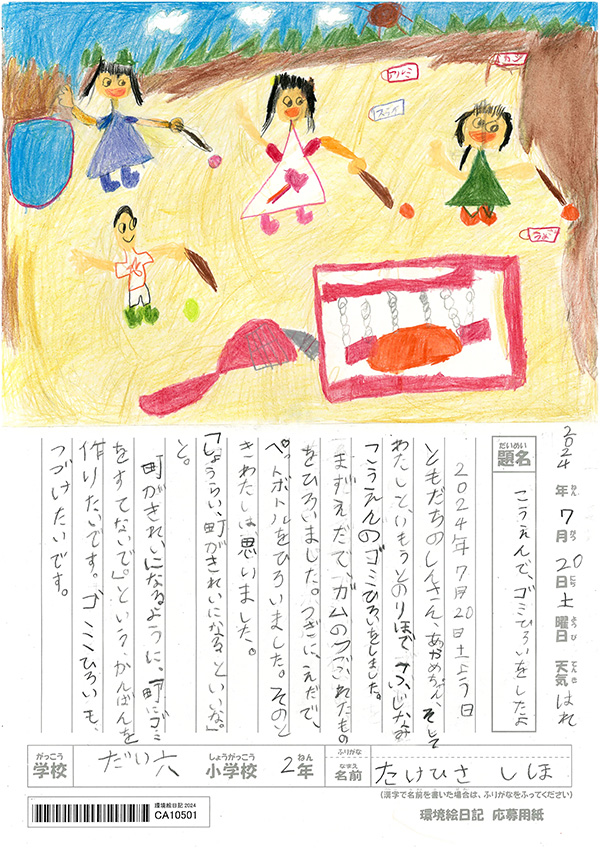 アルミ
カン
スチール
2024年7月20日土曜日 天気はれ
ねん
がつ
にち
ようび
てんき
だいめい
題名
こうえんで、ゴミひろいをしたよ
2024年7月20日土よう日
ともだちのしんさん、あかめちゃん、そして
わたしと、いもうとのりほで、
「こうえんのゴミひろいをしました。
まずえだで、ガムのつぶれたもの
をひろいました。つぎに、えだで、
ペットボトルをひろいました。そのと
きわたしは思いました。
「しょうらい、町がきれいになるといいな。」
と。
町がきれいになるように、「町にゴミ
をすてないで。」という、かんばんを
作りたいです。ゴミひろいも、
つづけたいです。
がっこう
学校
だい六
しょうがっこう
小学校
2年
ねん
ふりがな
なまえ
名前
たけひさ しほ
(漢字で名前を書いた場合は、ふりがなをふってください)
環境絵日記2024
CA10501
環境絵日記 応募用紙